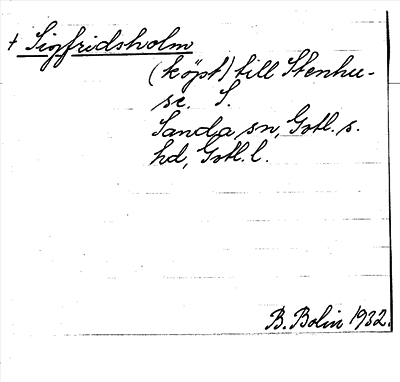 + Sigfridsholm
(köpt) till Stenhu-
se. S.
Sanda sn, Gotl. s.
hd, Gotl. l.
B. Bolin 1932.